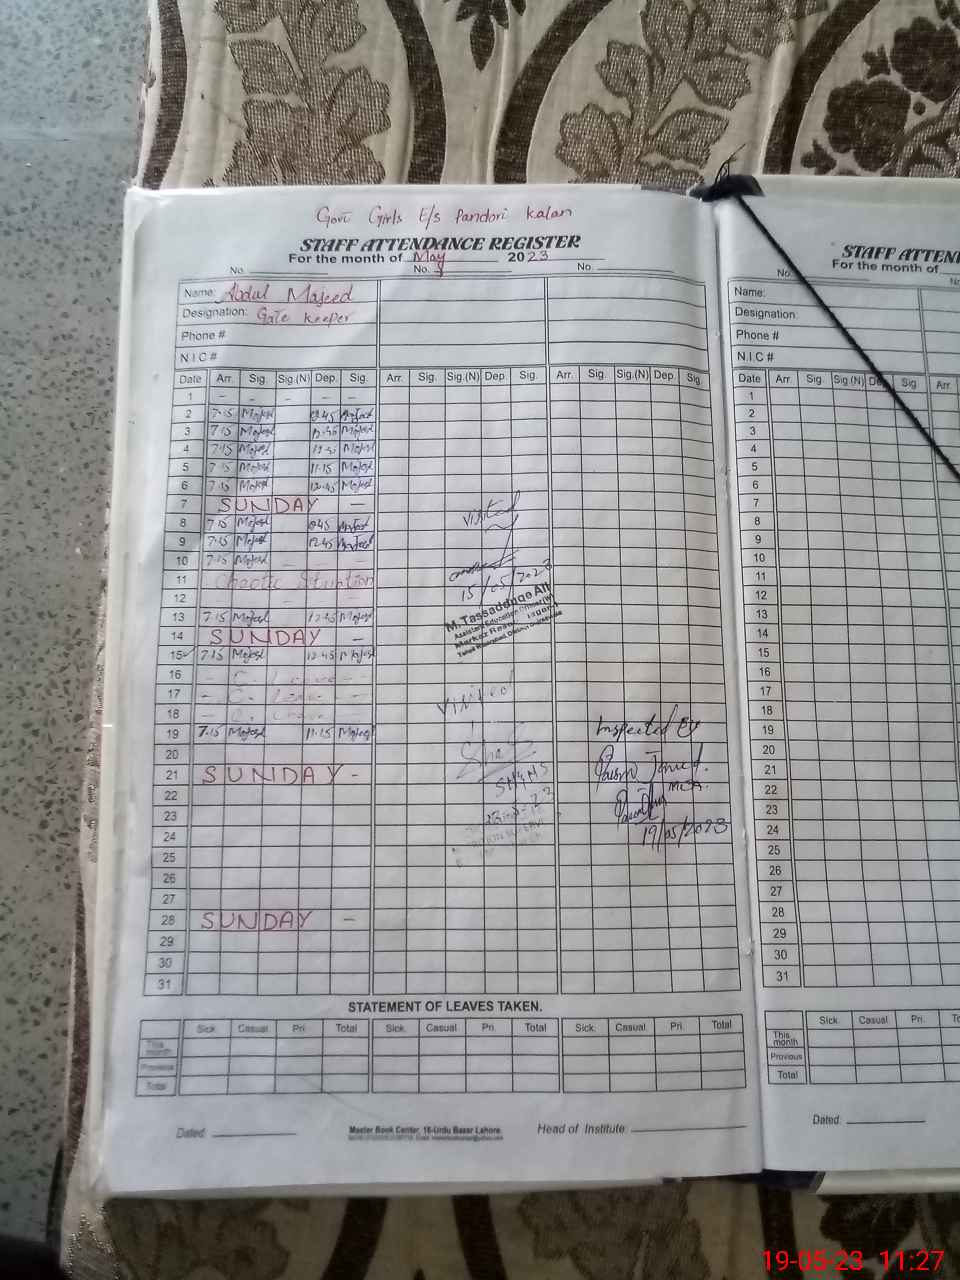 Govt Girls E/s Pandori Kalan
STAFF ATTENDANCE REGISTER
For the month of May 2023
No. No. No.
Name: Abdul Majeed
Designation: Gate keeper
Phone #
N.I.C #
Date Arr. Sig. Sig.(N) Dep. Sig. Arr. Sig. Sig.(N) Dep. Sig. Arr. Sig. Sig.(N) Dep. Sig.
1 - - - - -
2 7.15 Majeed 12.45 Majeed
3 7.15 Majeed 12.45 Majeed
4 7.15 Majeed Majeed
5 7.15 Majeed 11.15 Majeed
6 7.15 Majeed 12.45 Majeed
7 SUNDAY -
8 7.15 Majeed Majeed
9 7.15 Majeed 12.45 Majeed
10 7.15 Majeed
11 Chaotic Situation
12
13 7.15 Majeed 12.45 Majeed
14 SUNDAY -
15 7.15 Majeed 12.45 Majeed
16 - C. Leave - -
17 - C. Leave -
18 - C. Leave -
19 7.15 Majeed 11.15 Majeed
20
21 SUNDAY -
22
23
24
25
26
27
28 SUNDAY -
29
30
31
visited
15/05/2023
M.Tassadduqe Ali
Assistant Education Officer
Visited
Inspected By
19/05/2023
STATEMENT OF LEAVES TAKEN.
Sick. Casual Pri. Total Sick. Casual Pri. Total Sick. Casual Pri. Total
This month
Previous
Total
Dated:
Master Book Center, 16-Urdu Bazar Lahore.
Head of Institute:
STAFF ATTEN
For the month of
No.
Name:
Designation:
Phone #
N.I.C #
Date Arr. Sig. Sig.(N) Sig. Arr.
1
2
3
4
5
6
7
8
9
10
11
12
13
14
15
16
17
18
19
20
21
22
23
24
25
26
27
28
29
30
31
Sick. Casual Pri.
This month
Previous
Total
Dated:
19-05-23 11:27